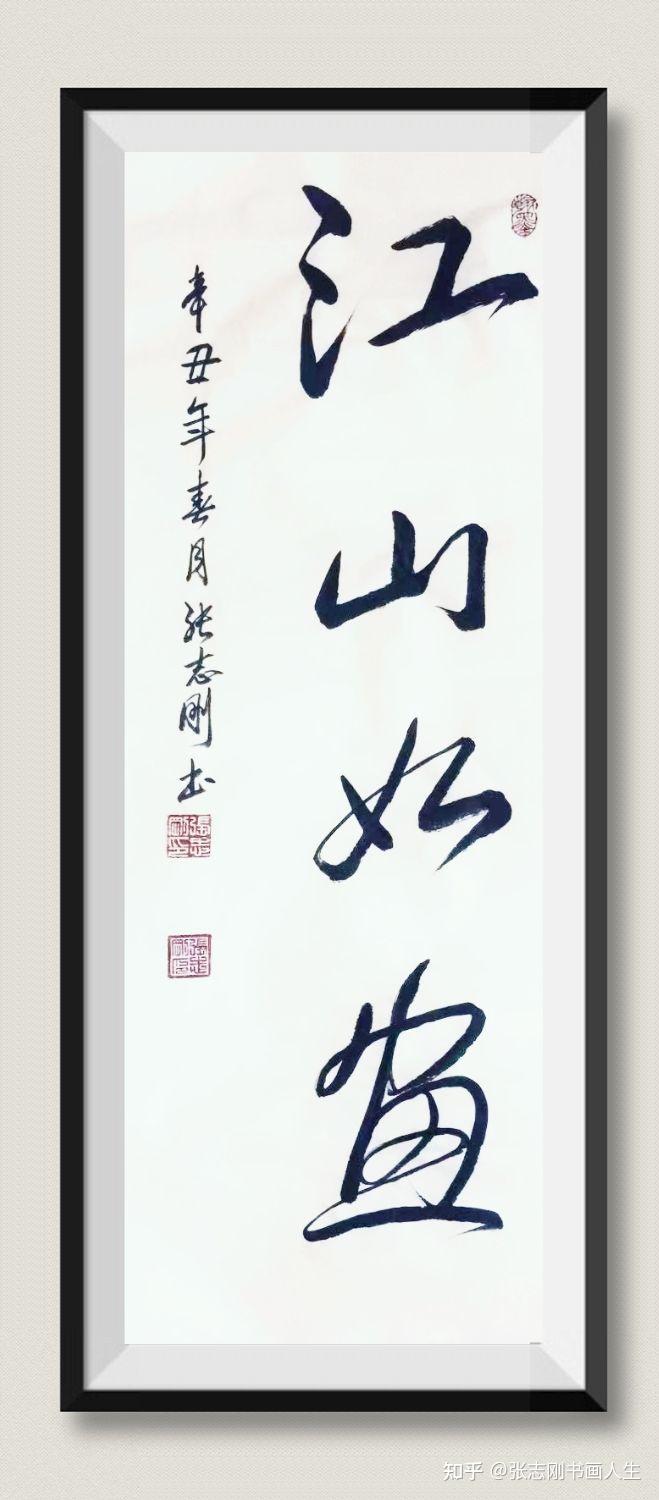 江山如画
辛丑年春月张志刚书
知乎 @张志刚书画人生